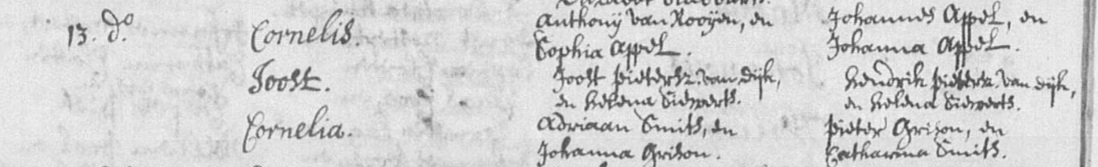 13. do. Cornelis. Anthonij van Rooijen, en Johannes Appel, en
Sophia Appel. Johanna Appel.
Joost. Joost Pietersz. van dijk, hendrik Pietersz. van dijk,
en helena Sieverts. en helena Sieverts.
Cornelia. Adriaan Smits, en Pieter Grison, en
Johanna Grison. Catharina Smits.